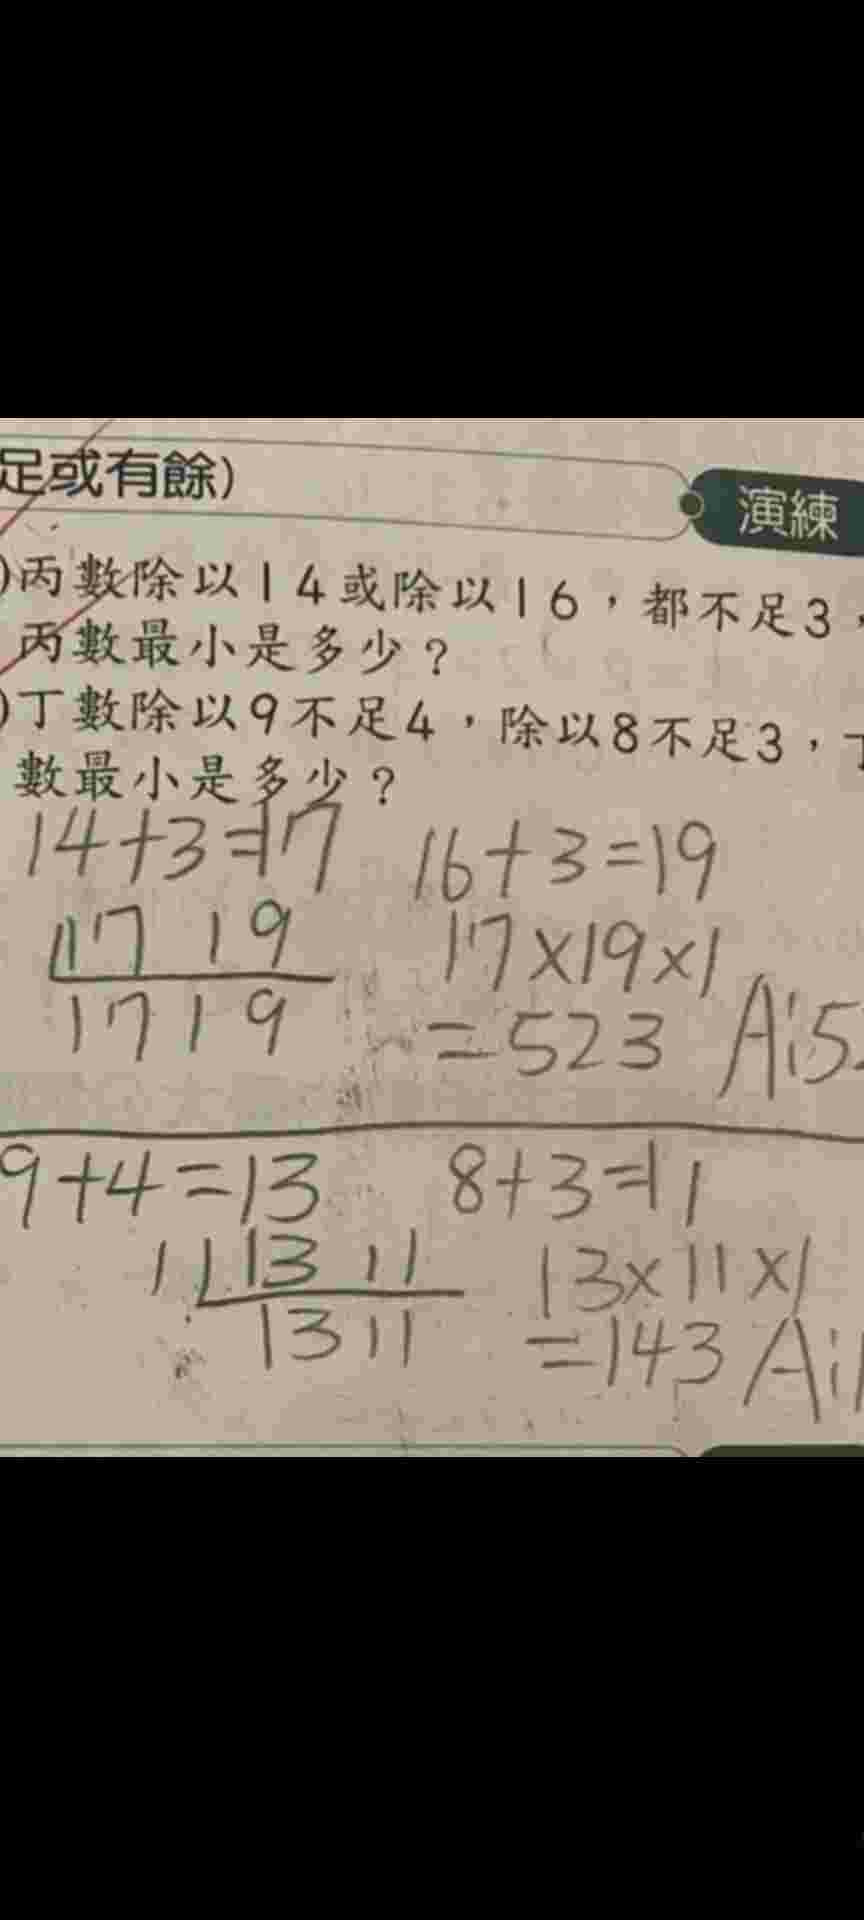 足或有餘)
演練
)丙數除以14或除以16，都不足3，
丙數最小是多少？
)丁數除以9不足4，除以8不足3，丁
數最小是多少？
14+3=17 16+3=19
1 17 19 17×19×1
17 19 =523 A:52
9+4=13 8+3=11
1 13 11 13×11×1
13 11 =143 A:1